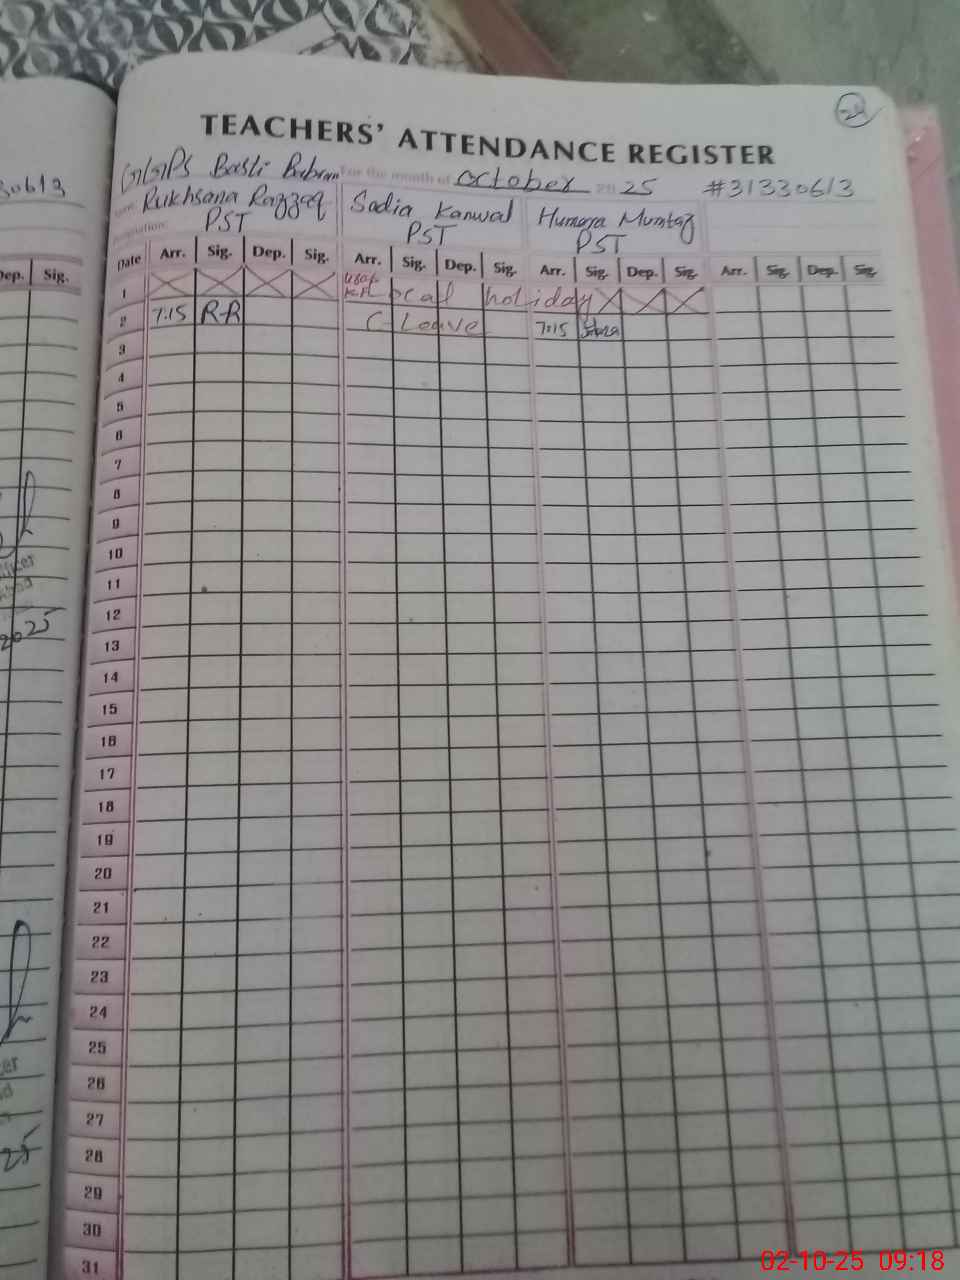 29
TEACHERS' ATTENDANCE REGISTER
GGPS Basti Babran For the month of October 20 25 #31330613
30613
Rukhsana Razzaq Sadia Kanwal Humera Mumtaz
PST PST PST
Dep. Sig.
Date Arr. Sig. Dep. Sig. Arr. Sig. Dep. Sig. Arr. Sig. Dep. Sig. Arr. Sig. Dep. Sig.
1 Local holiday
2 7:15 R-R C-Leave 7:15
3
4
5
6
7
8
9
10
11
12
13
14
15
16
17
18
19
20
21
22
23
24
25
26
27
28
29
30
31
2025
25
02-10-25 09:18